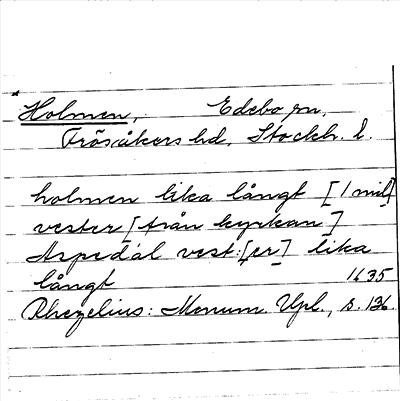 Holmen, Edebo sn,
Frösåkers hd, Stockh. l.
holmen lika långt [1 mil]
vester [från kyrkan]
Aspedal vest:[er] lika
långt 1635
Rhezelius: Monum. Upl., s. 136.